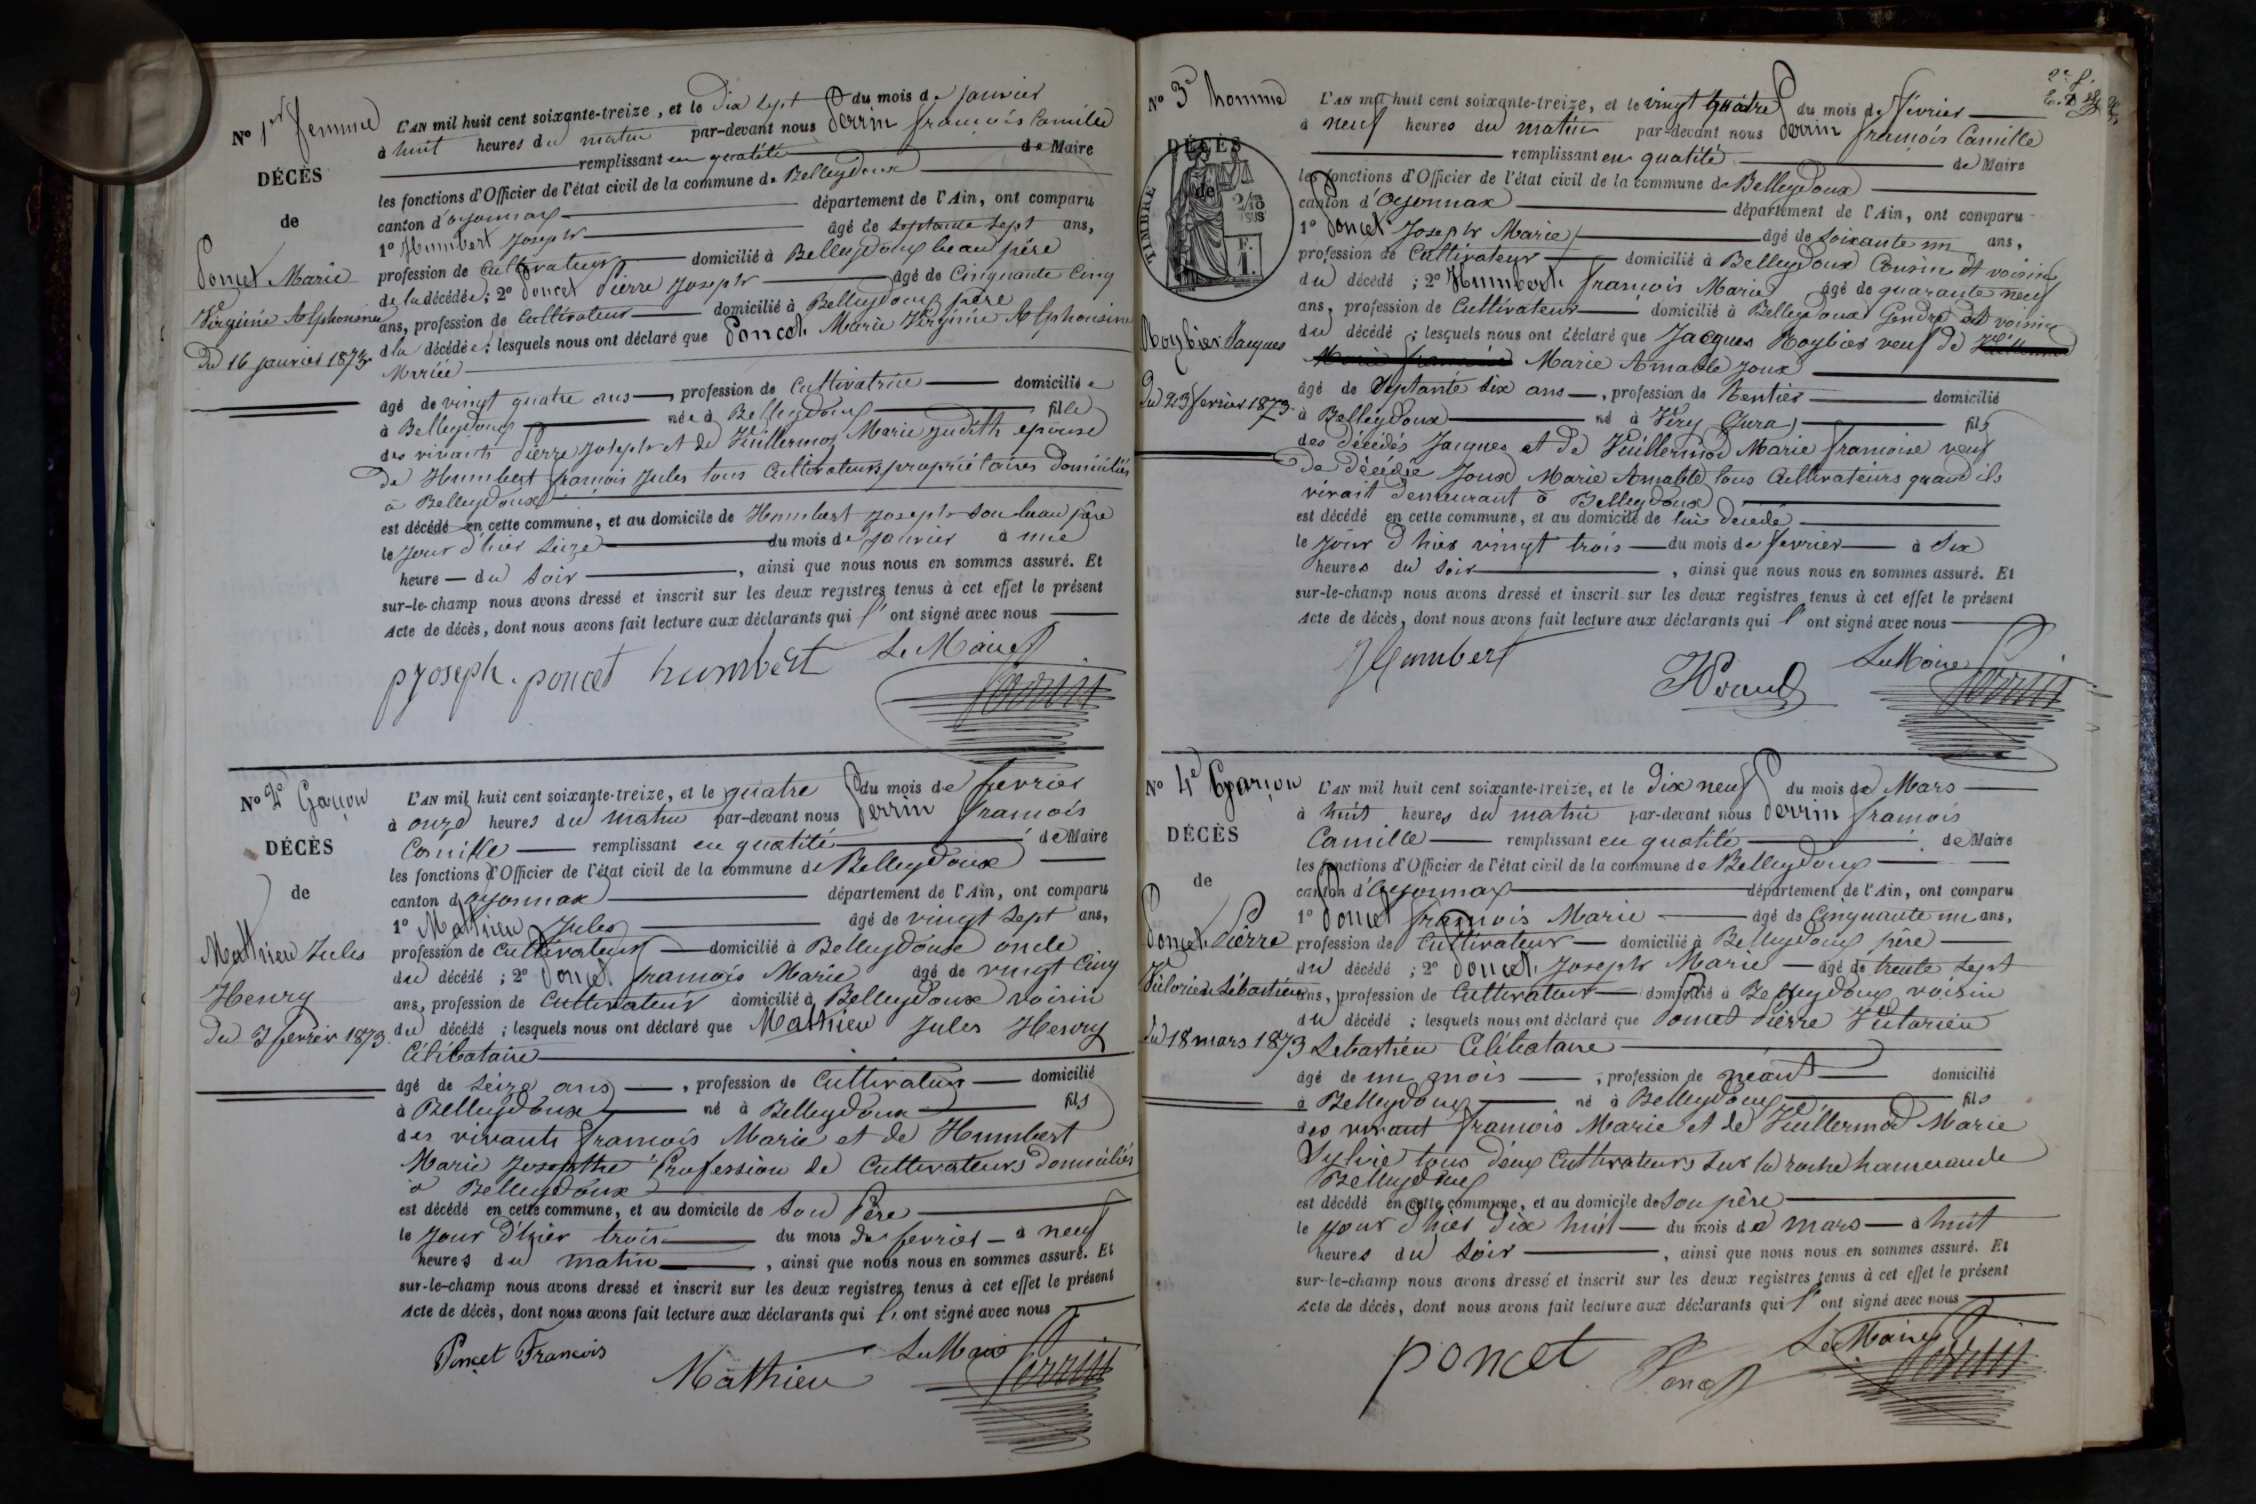 N° 1er femme
DÉCÈS
de
Poncet Marie
Virginie Alphonsine
Du 16 janvier 1873
L'AN mil huit cent soixante-treize, et le Dix sept du mois de janvier
à huit heures du matin par-devant nous Perrin françois Camille
remplissant en qualité de Maire
les fonctions d'Officier de l'état civil de la commune de Belleydoux
canton d'oyonnax département de l'Ain, ont comparu
1° Humbert Joseph âgé de septante sept ans,
profession de Cultivateur domicilié à Belleydoux beau père
de la décédée; 2° Poncet Pierre Joseph âgé de Cinquante Cinq
ans, profession de Cultivateur domicilié à Belleydoux père
d la décédée; lesquels nous ont déclaré que Poncet Marie Virginie Alphonsine
Mariée
âgé de vingt quatre ans, profession de Cultivatrice domiciliée
à Belleydoux née à Belleydoux fille
des vivants Pierre Joseph et de Vuillermoz Marie Judith épouse
De Humbert françois Jules tous Cultivateurs propriétaires Domiciliés
à Belleydoux
est décédé en cette commune, et au domicile de Humbert Joseph Son beau père
le Jour d'hier Seize du mois de janvier à une
heure du Soir, ainsi que nous nous en sommes assuré. Et
sur-le-champ nous avons dressé et inscrit sur les deux registres tenus à cet effet le présent
Acte de décès, dont nous avons fait lecture aux déclarants qui l'ont signé avec nous
pjoseph. poncet humbert Le Maire
Perrin
N° 2e Garçon
DÉCÈS
de
Mathieu Jules
Henry
Du 3 fevrier 1873.
L'AN mil huit cent soixante-treize, et le quatre du mois de fevrier
à onze heures du matin par-devant nous Perrin françois
Camille remplissant en qualité de Maire
les fonctions d'Officier de l'état civil de la commune de Belleydoux
canton d oyonnax département de l'Ain, ont comparu
1° Mathieu Jules âgé de vingt sept ans,
profession de Cultivateur domicilié à Belleydoux oncle
du décédé; 2° Poncet françois Marie âgé de vingt Cinq
ans, profession de Cultivateur domicilié à Belleydoux voisin
du décédé; lesquels nous ont déclaré que Mathieu Jules Henry
Célibataire
âgé de Seize ans, profession de Cultivateur domicilié
à Belleydoux né à Belleydoux fils
des vivants françois Marie et de Humbert
Marie Josephthe Profession de Cultivateurs Domiciliés
à Belleydoux
est décédé en cette commune, et au domicile de Son Père
le Jour d'hier trois du mois de fevrier à neuf
heures du matin, ainsi que nous nous en sommes assuré. Et
sur-le-champ nous avons dressé et inscrit sur les deux registres tenus à cet effet le présent
Acte de décès, dont nous avons fait lecture aux déclarants qui l'ont signé avec nous
Poncet Francois Mathieu Le Maire
Perrin
2e f.
N° 3e homme
DÉCÈS
de
TIMBRE
2/10
EN SUS
F.
1.
Roybier Jacques
Du 23 fevrier 1873.
L'AN mil huit cent soixante-treize, et le vingt quatre du mois de fevrier
à neuf heures du matin par-devant nous Perrin françois Camille
remplissant en qualité de Maire
les fonctions d'Officier de l'état civil de la commune de Belleydoux
canton d'Oyonnax département de l'Ain, ont comparu
1° Poncet Joseph Marie âgé de Soixante un ans,
profession de Cultivateur domicilié à Belleydoux Cousin et voisin
du décédé; 2° Humbert françois Marie âgé de quarante neuf
ans, profession de Cultivateur domicilié à Belleydoux Gendre et voisin
du décédé; lesquels nous ont déclaré que Jacques Roybier veuf de
Marie Amable Joux
âgé de Septante Six ans, profession de Rentier domicilié
à Belleydoux né à Viry (Jura) fils
des décédés Jacques et de Vuillermod Marie françoise veuf
De décédée Joux Marie Amable tous Cultivateurs quand ils
vivait demeurant à Belleydoux
est décédé en cette commune, et au domicile de lui décédé
le Jour d'hier vingt trois du mois de fevrier à Six
heures du Soir, ainsi que nous nous en sommes assuré. Et
sur-le-champ nous avons dressé et inscrit sur les deux registres tenus à cet effet le présent
Acte de décès, dont nous avons fait lecture aux déclarants qui l'ont signé avec nous
Humbert Le Maire
Perrin
N° 4e Garçon
DÉCÈS
de
Poncet Pierre
Victorien Sébastien
du 18 mars 1873
L'AN mil huit cent soixante-treize, et le Dix neuf du mois de Mars
à huit heures du matin par-devant nous Perrin françois
Camille remplissant en qualité de Maire
les fonctions d'Officier de l'état civil de la commune de Belleydoux
canton d'Oyonnax département de l'Ain, ont comparu
1° Poncet françois Marie âgé de Cinquante un ans,
profession de Cultivateur domicilié à Belleydoux père
du décédé; 2° Poncet Joseph Marie âgé de trente sept
ans, profession de Cultivateur domicilié à Belleydoux voisin
du décédé; lesquels nous ont déclaré que Poncet Pierre Victorien
Sebastien Célibataire
âgé de un mois, profession de néant domicilié
à Belleydoux né à Belleydoux fils
des vivant françois Marie et de Vuillermod Marie
Sylvie tous deux Cultivateurs sur la
Belleydoux
est décédé en cette commune, et au domicile de Son père
le jour d'hier Dix huit du mois de mars à huit
heures du Soir, ainsi que nous nous en sommes assuré. Et
sur-le-champ nous avons dressé et inscrit sur les deux registres tenus à cet effet le présent
Acte de décès, dont nous avons fait lecture aux déclarants qui l'ont signé avec nous
poncet Poncet Le Maire
Perrin